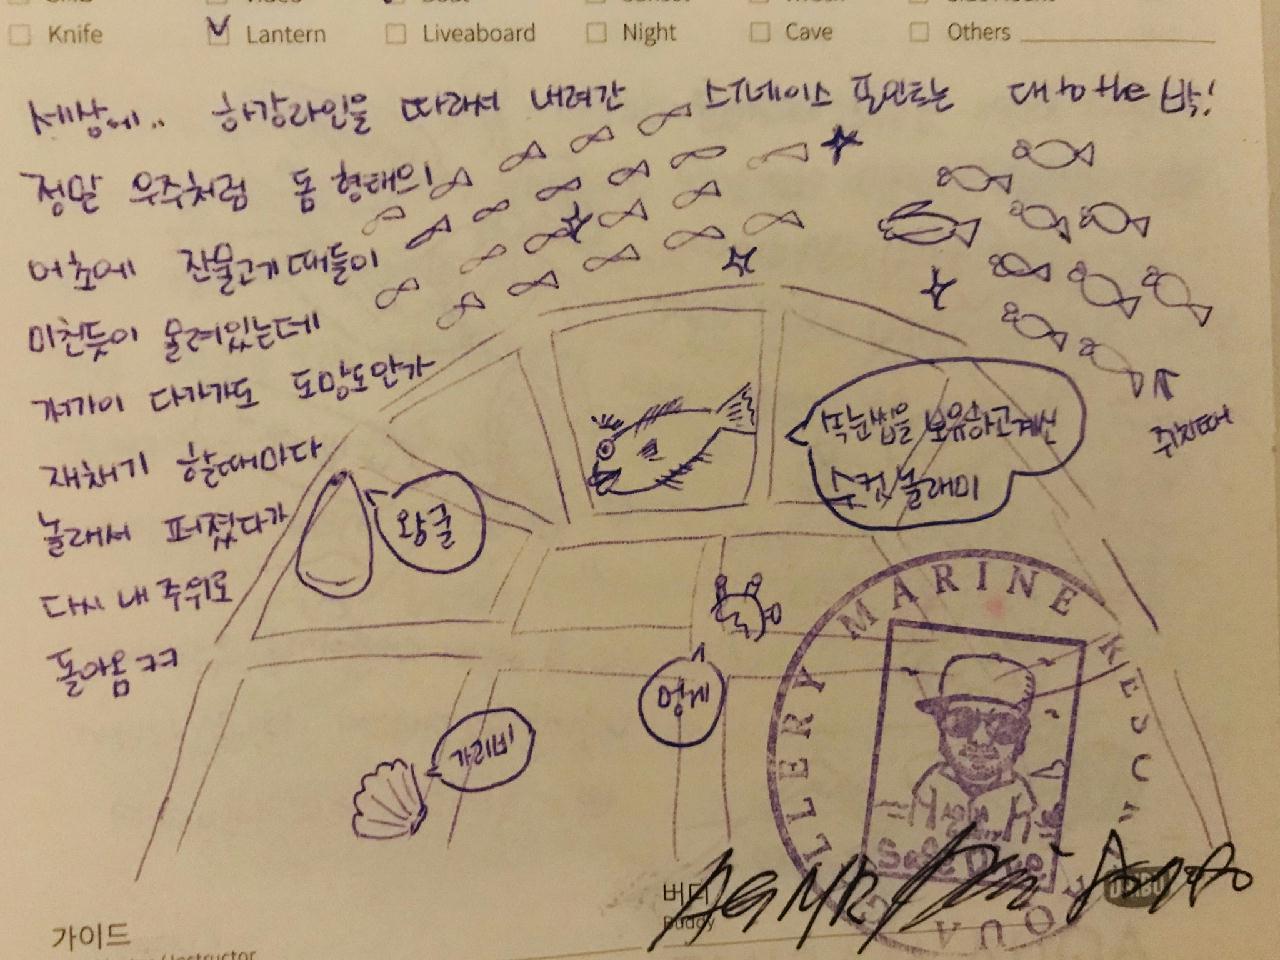 Knife Lantern Liveaboard Night Cave Others
세상에.. 하강라인을 따라서 내려간 스티네이스 포인트는 대to the박!
정말 우주처럼 돔 형태의
어초에 잔물고기떼들이
미친듯이 몰려있는데
저같이 다가가도 도망도안가
재채기 할때마다
놀래서 퍼졌다가
다시 내 주위로
돌아옴 ㅋㅋ
쥐치떼
속눈썹을 보유하고계신
수컷 놀래미
왕굴
멍게
가리비
AQUA GALLERY MARINE RESCUE
AQUA
Safe Dive
가이드
버디
Buddy